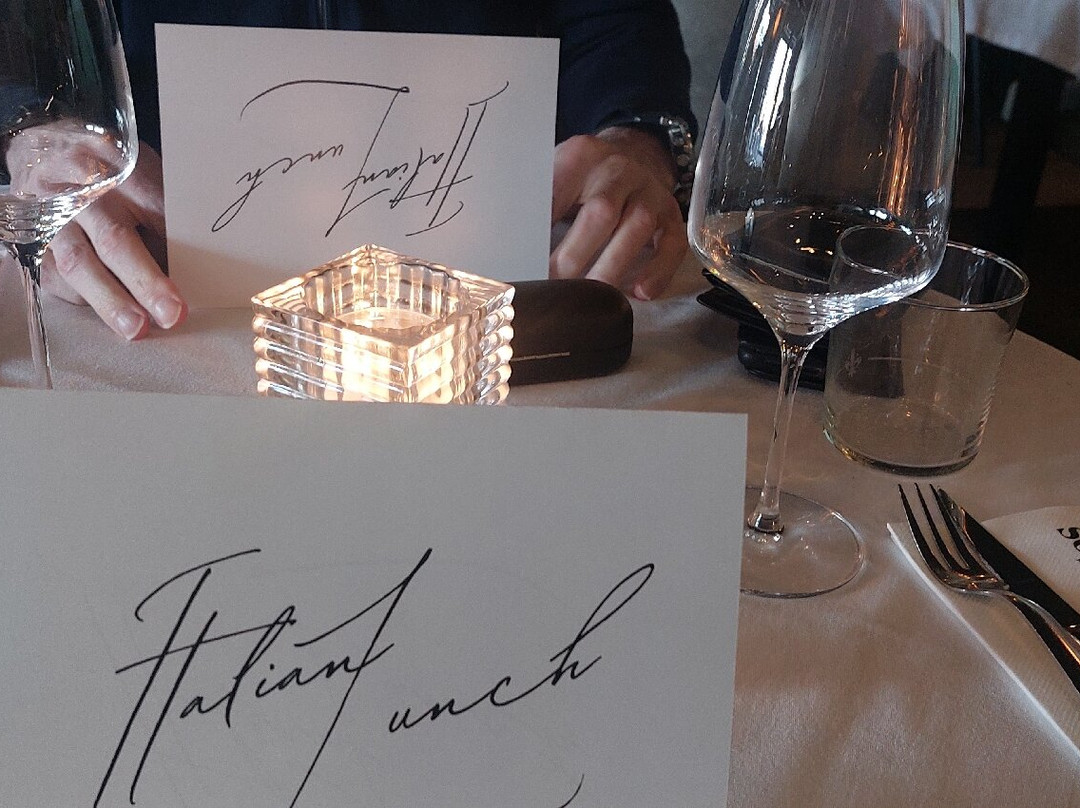 Italian Lunch
Italian Lunch